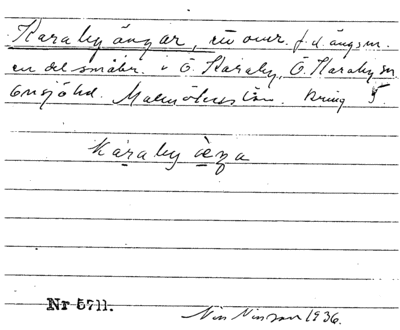 Karaby ängar, nu omr. f.d. ängsm.
en del småbr. i Ö. Karaby, Ö. Karaby sn
Onsjö hd. Malmöhus län. Kring 5.
Karaby
Nr 5711.
Nils Nilsson 1936.